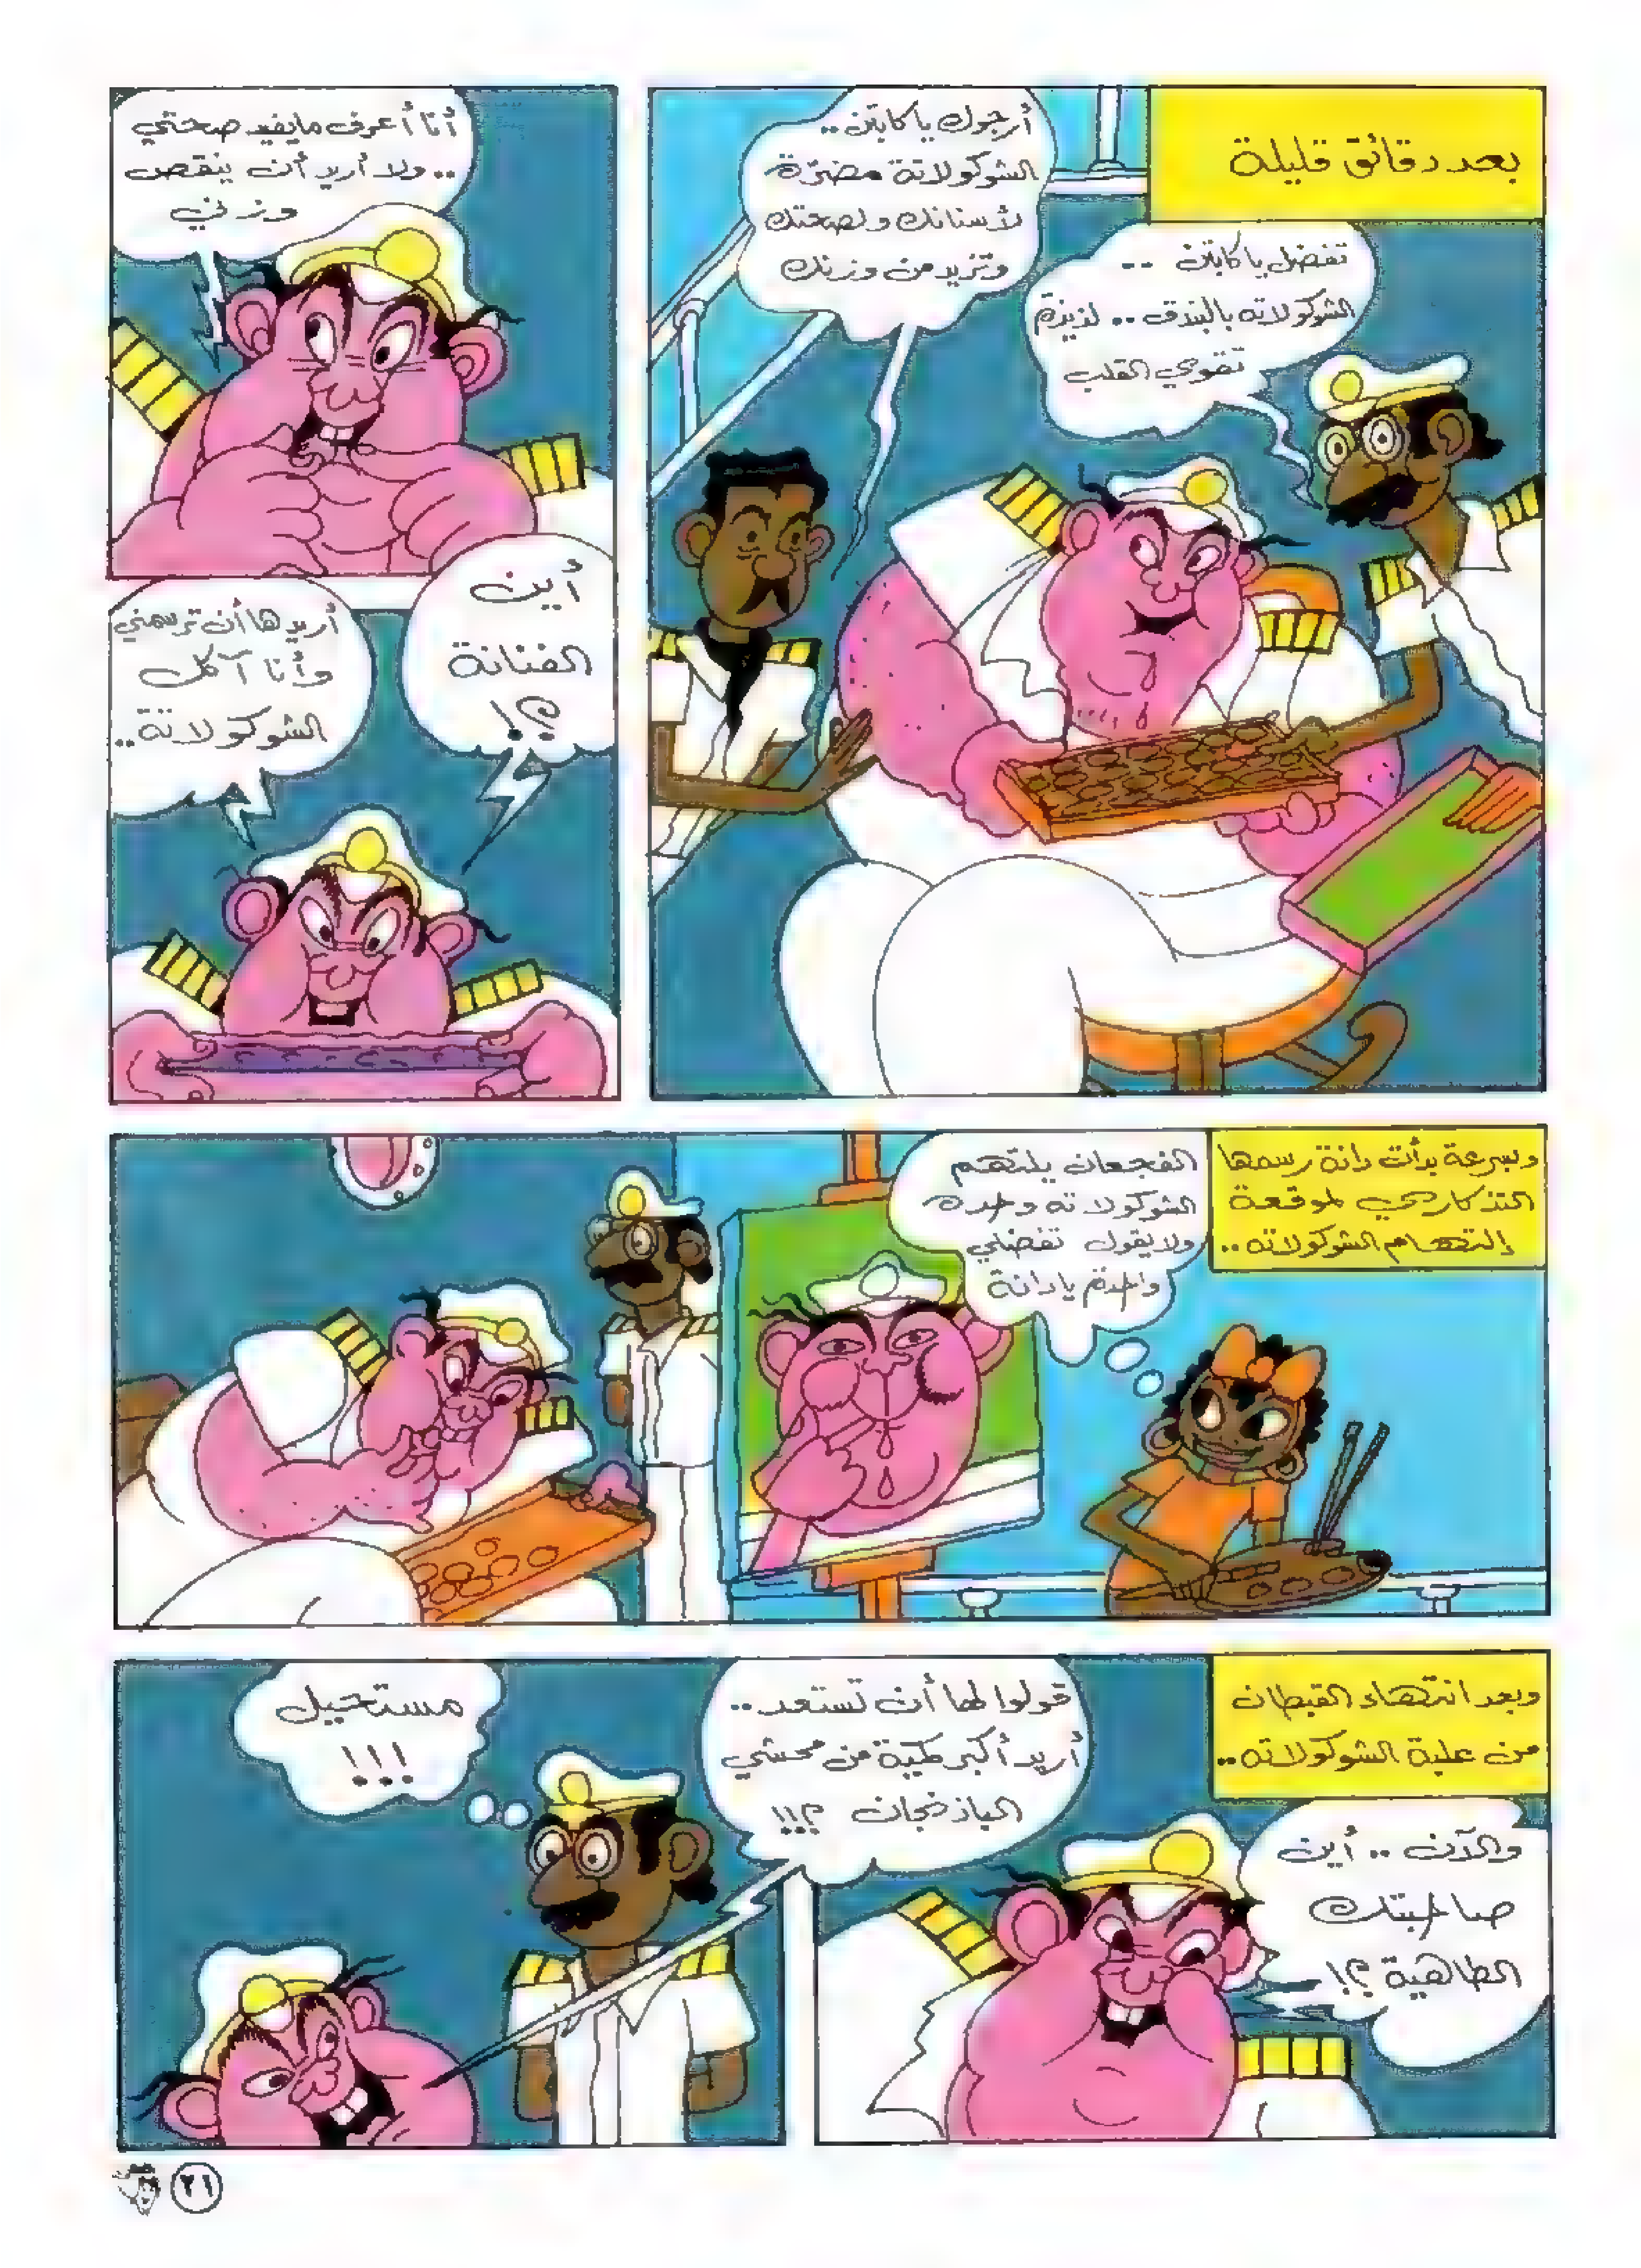 بعد دقائق قليلة
تفضل ياكابتن ..
الشوكولاته بالبندق .. لذيذة
تقوي القلب
أرجوك ياكابتن ..
الشوكولاتة مضرّة
لأسنانك ولصحتك
وتزيد من وزنك
أنا أعرف مايفيد صحتي
.. ولا أريد أن ينقص
وزني
أين
الفنانة
؟!
أريدها أن ترسمني
وأنا آكل
الشوكولاتة ..
وبسرعة بدأت دانة رسمها
التذكاري لموقعة
إلتهام الشوكولاته ..
الفجعان يلتهم
الشوكولاته وحده
ولايقول تفضلي
واحدة يادانة
وبعد انتهاء القبطان
من علبة الشوكولاته ..
والآن .. أين
صاحبتك
الطاهية ؟!
قولوا لها أن تستعد ..
أريد أكبر كمية من محشي
الباذنجان ؟!!
مستحيل
!!!
٢٦